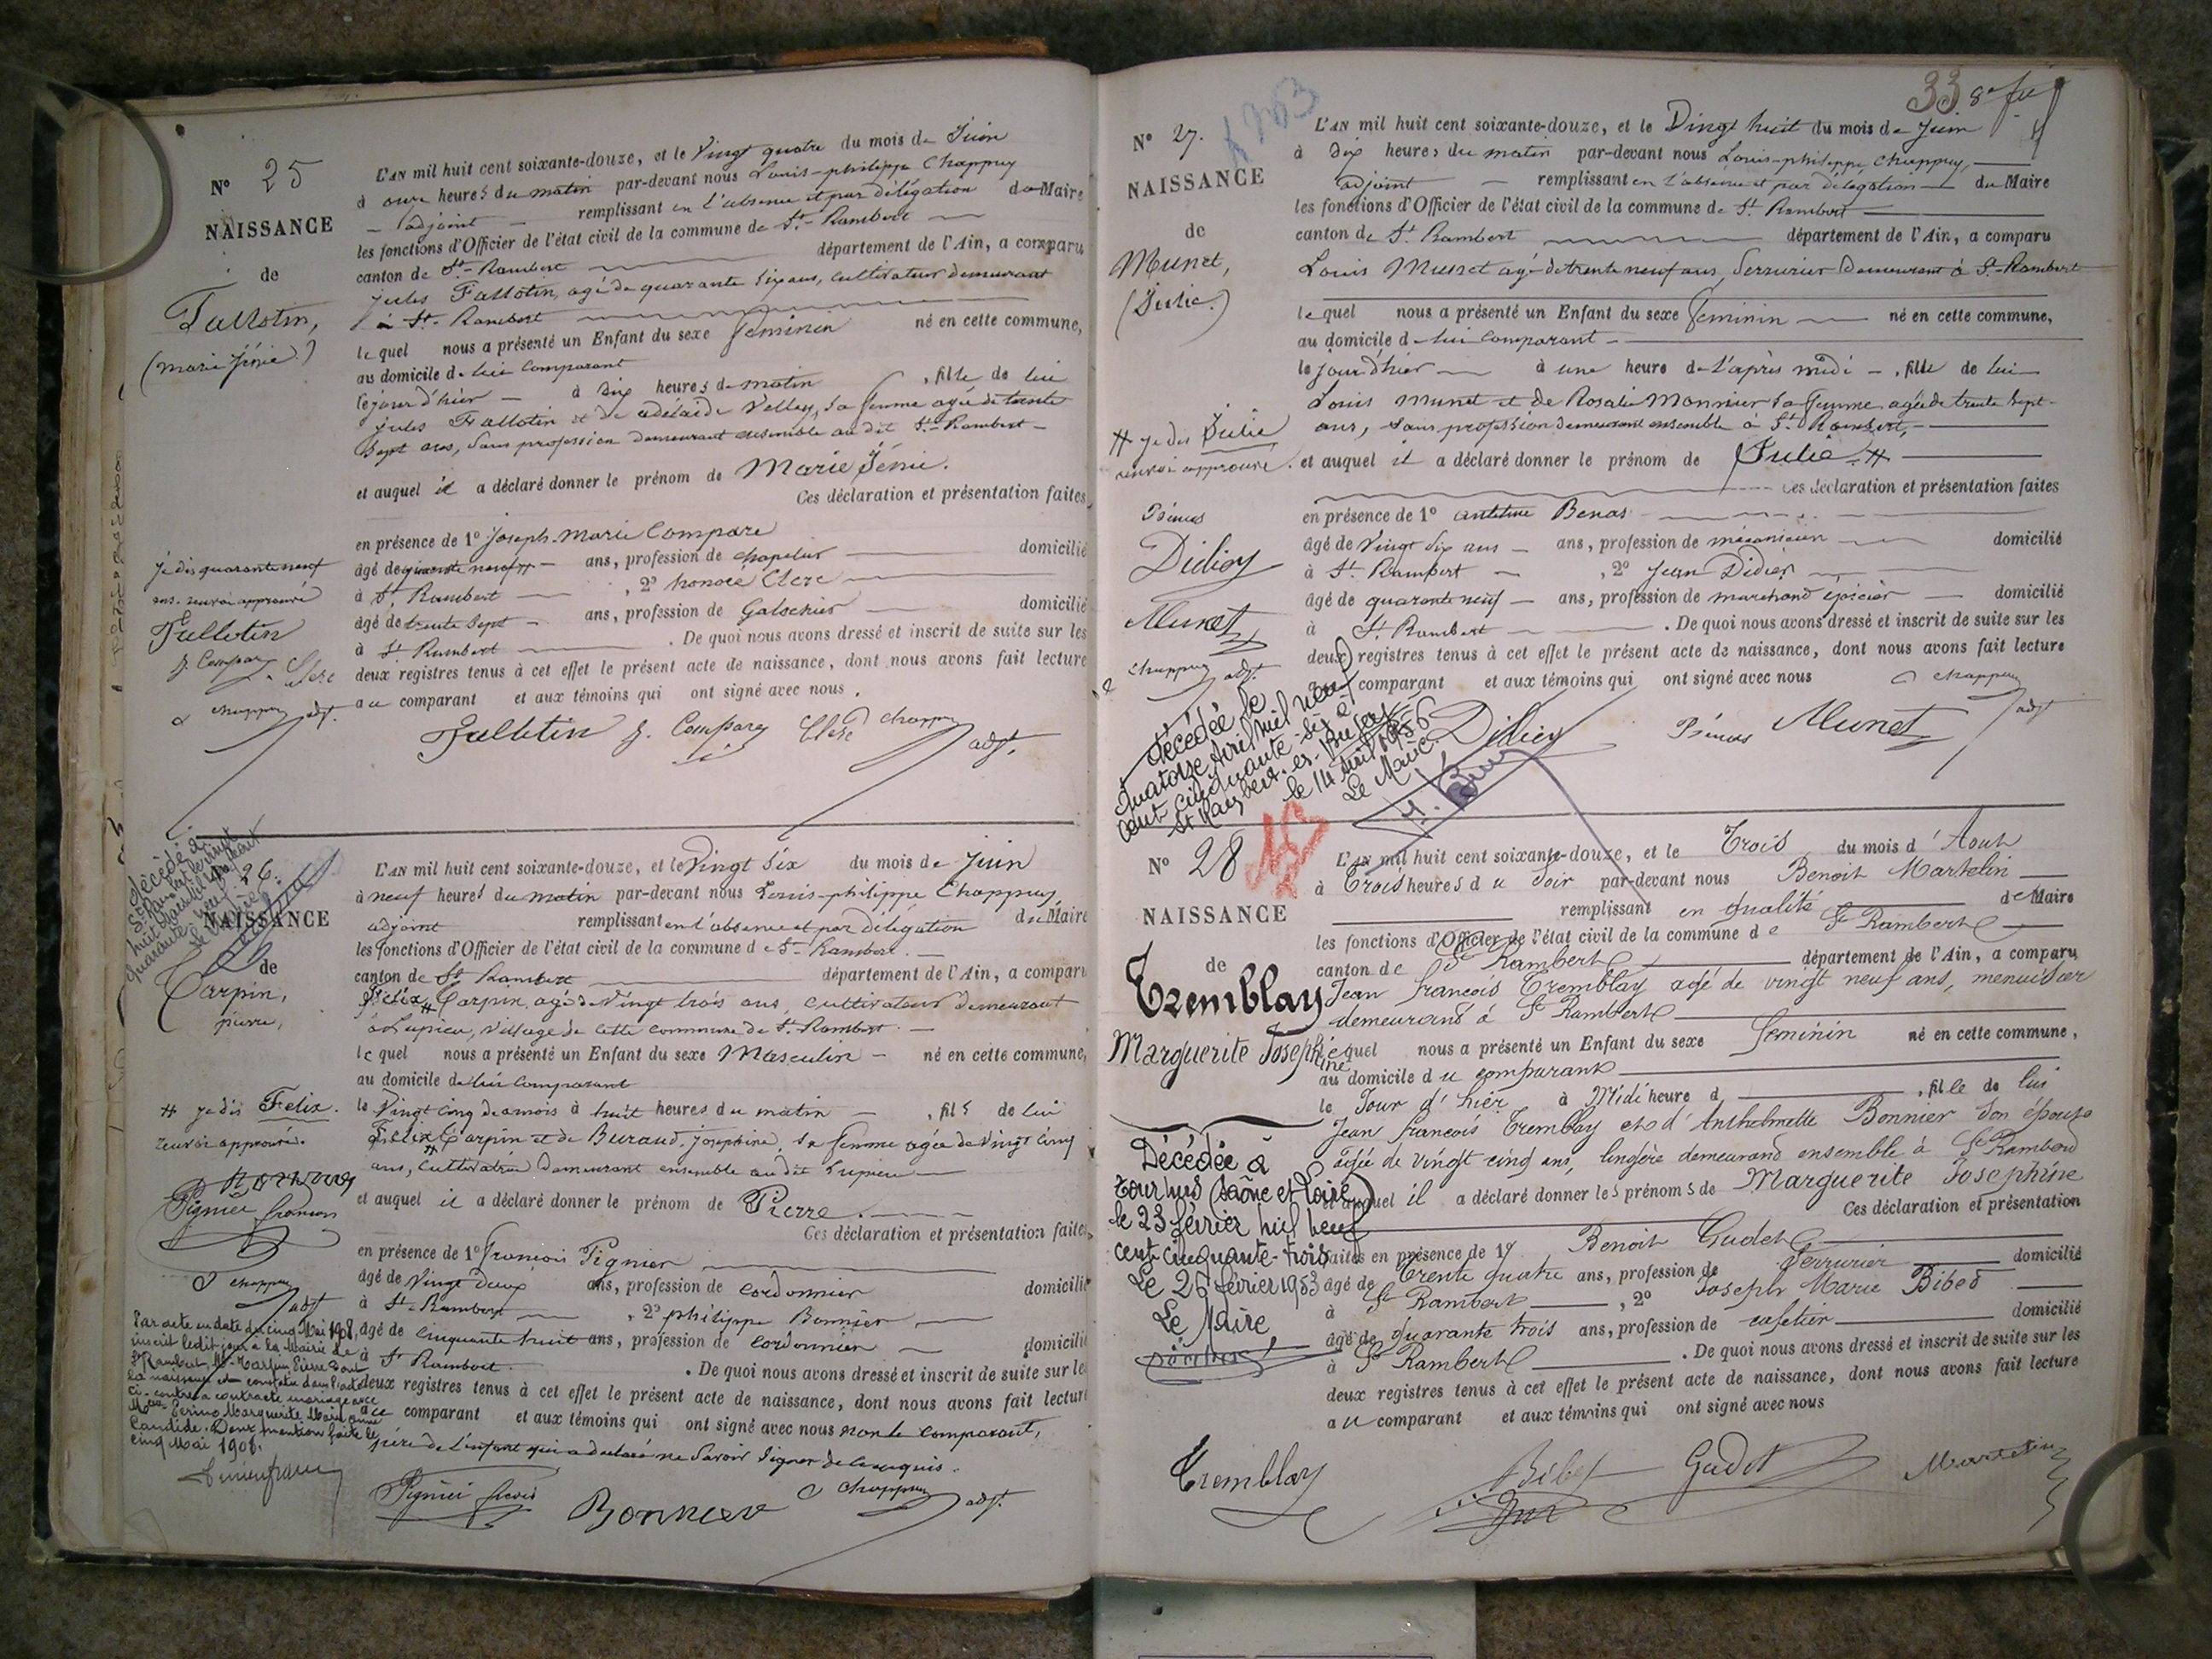 N° 25
NAISSANCE
de
Fallotin,
(marie Jénie)
L'AN mil huit cent soixante-douze, et le Vingt quatre du mois de Juin
à onze heures du matin par-devant nous Louis-philippe Chappuy
adjoint remplissant en l'absence et par délégation du Maire
les fonctions d'Officier de l'état civil de la commune de St-Rambert
canton de St-Rambert département de l'Ain, a comparu
jules Fallotin, agé de quarante six ans, cultivateur demeurant
à St-Rambert
lequel nous a présenté un Enfant du sexe Feminin né en cette commune,
au domicile de lui comparant
le jour d'hier à dix heures du matin, fille de lui
jules Fallotin et de adélaïde Velley, sa femme agée de trente
sept ans, sans profession demeurant ensemble au dit St-Rambert
et auquel il a déclaré donner le prénom de Marie Jénie.
Ces déclaration et présentation faites
en présence de 1° joseph-marie Compare
âgé de quarante neuf ans, profession de chapelier domicilié
à St Rambert, 2° honoré Clerc
âgé de trente sept ans, profession de Galochier domicilié
à St Rambert. De quoi nous avons dressé et inscrit de suite sur les
deux registres tenus à cet effet le présent acte de naissance, dont nous avons fait lecture
au comparant et aux témoins qui ont signé avec nous.
je dis quarante neuf
ans. renvoi approuvé
Fallotin
J. Compare Clerc
chappuy adjt.
Fallotin J. Compare Clerc chappuy adjt.
26.
NAISSANCE
de
Carpin,
pierre,
L'AN mil huit cent soixante-douze, et le Vingt six du mois de Juin
à neuf heures du matin par-devant nous Louis-philippe Chappuy
adjoint remplissant en l'absence et par délégation du Maire
les fonctions d'Officier de l'état civil de la commune de St-Rambert
canton de St Rambert département de l'Ain, a comparu
Felix Carpin agé de Vingt trois ans, cultivateur demeurant
à Lupieu, village de cette commune de St-Rambert
lequel nous a présenté un Enfant du sexe Masculin né en cette commune,
au domicile de lui comparant
le Vingt cinq de ce mois à huit heures du matin, fils de lui
Felix Carpin et de Buraud, josephine, sa femme agée de Vingt cinq
ans, cultivatrice demeurant ensemble au dit Lupieu
et auquel il a déclaré donner le prénom de Pierre.
Ces déclaration et présentation faites
en présence de 1° François Pignier
âgé de Vingt deux ans, profession de cordonnier domicilié
à St-Rambert, 2° philippe Bonnier
âgé de cinquante huit ans, profession de cordonnier domicilié
à St Rambert. De quoi nous avons dressé et inscrit de suite sur les
deux registres tenus à cet effet le présent acte de naissance, dont nous avons fait lecture
au comparant et aux témoins qui ont signé avec nous non le comparant,
père de l'enfant qui a déclaré ne savoir signer de ce requis.
# je dis Felix.
renvoi approuvé.
Pignier françois
chappuy
adjt
Par acte en date du cinq Mai 1908,
inscrit ledit jour à la Mairie de
St Rambert, Mr Carpin Pierre dont
la naissance est constatée dans l'acte
ci-contre a contracté mariage avec
Marguerite Marianne
Candide. Dont mention faite le
cinq Mai 1908.
Pignier Bonnier chappuy adjt.
33 8e
N° 27.
NAISSANCE
de
Munet,
(Julie.)
L'AN mil huit cent soixante-douze, et le Vingt huit du mois de Juin
à dix heures du matin par-devant nous Louis-philippe chappuy,
adjoint remplissant en l'absence et par délégation du Maire
les fonctions d'Officier de l'état civil de la commune de St Rambert
canton de St Rambert département de l'Ain, a comparu
Louis Munet agé de trente neuf ans, Serrurier demeurant à St-Rambert
lequel nous a présenté un Enfant du sexe Feminin né en cette commune,
au domicile de lui comparant
le jour d'hier à une heure de l'après midi, fille de lui
Louis Munet et de Rosalie Monnier sa femme agée de trente sept
ans, sans profession demeurant ensemble à St Rambert,
et auquel il a déclaré donner le prénom de Julie #
Ces déclaration et présentation faites
en présence de 1° antelme Benas
âgé de Vingt six ans ans, profession de mécanicien domicilié
à St Rambert, 2° Jean Didier
âgé de quarante neuf ans, profession de marchand épicier domicilié
à St Rambert. De quoi nous avons dressé et inscrit de suite sur les
deux registres tenus à cet effet le présent acte de naissance, dont nous avons fait lecture
au comparant et aux témoins qui ont signé avec nous
# je dis Julie
renvoi approuvé.
Didier
Munet
chappuy adjt.
Décédée le
quatorze Avril mil neuf
cent cinquante-six à
St Rambert-en-Bugey
le 14 Avril 1956
Le Maire
Didier Munet chappuy adjt
N° 28
NAISSANCE
de
Tremblay
Marguerite Joséphine
L'AN mil huit cent soixante-douze, et le Trois du mois d'Aout
à Trois heures du Soir par-devant nous Benoit Martelin
remplissant en qualité de Maire
les fonctions d'Officier de l'état civil de la commune de St Rambert
canton de St Rambert département de l'Ain, a comparu
Jean françois Tremblay agé de vingt neuf ans, menuisier
demeurand à St Rambert
lequel nous a présenté un Enfant du sexe Feminin né en cette commune,
au domicile du comparant
le Jour d'hier à Midi heure d, fille de lui
Jean françois Tremblay et d'Anthelmette Bonnier son épouse
agée de vingt cinq ans, lingère demeurand ensemble à St Rambert
et auquel il a déclaré donner les prénoms de Marguerite Josephine
Ces déclaration et présentation
faites en présence de 1° Benoit Gudet
âgé de Trente quatre ans, profession de Serrurier domicilié
à St Rambert, 2° Joseph Marie Bibet
âgé de quarante trois ans, profession de cafetier domicilié
à St Rambert. De quoi nous avons dressé et inscrit de suite sur les
deux registres tenus à cet effet le présent acte de naissance, dont nous avons fait lecture
au comparant et aux témoins qui ont signé avec nous
Décédée à
Tournus (Saône et Loire)
le 23 février mil neuf
cent cinquante-trois
Le 26 février 1953
Le Maire,
Tremblay Bibet Gudet Martelin